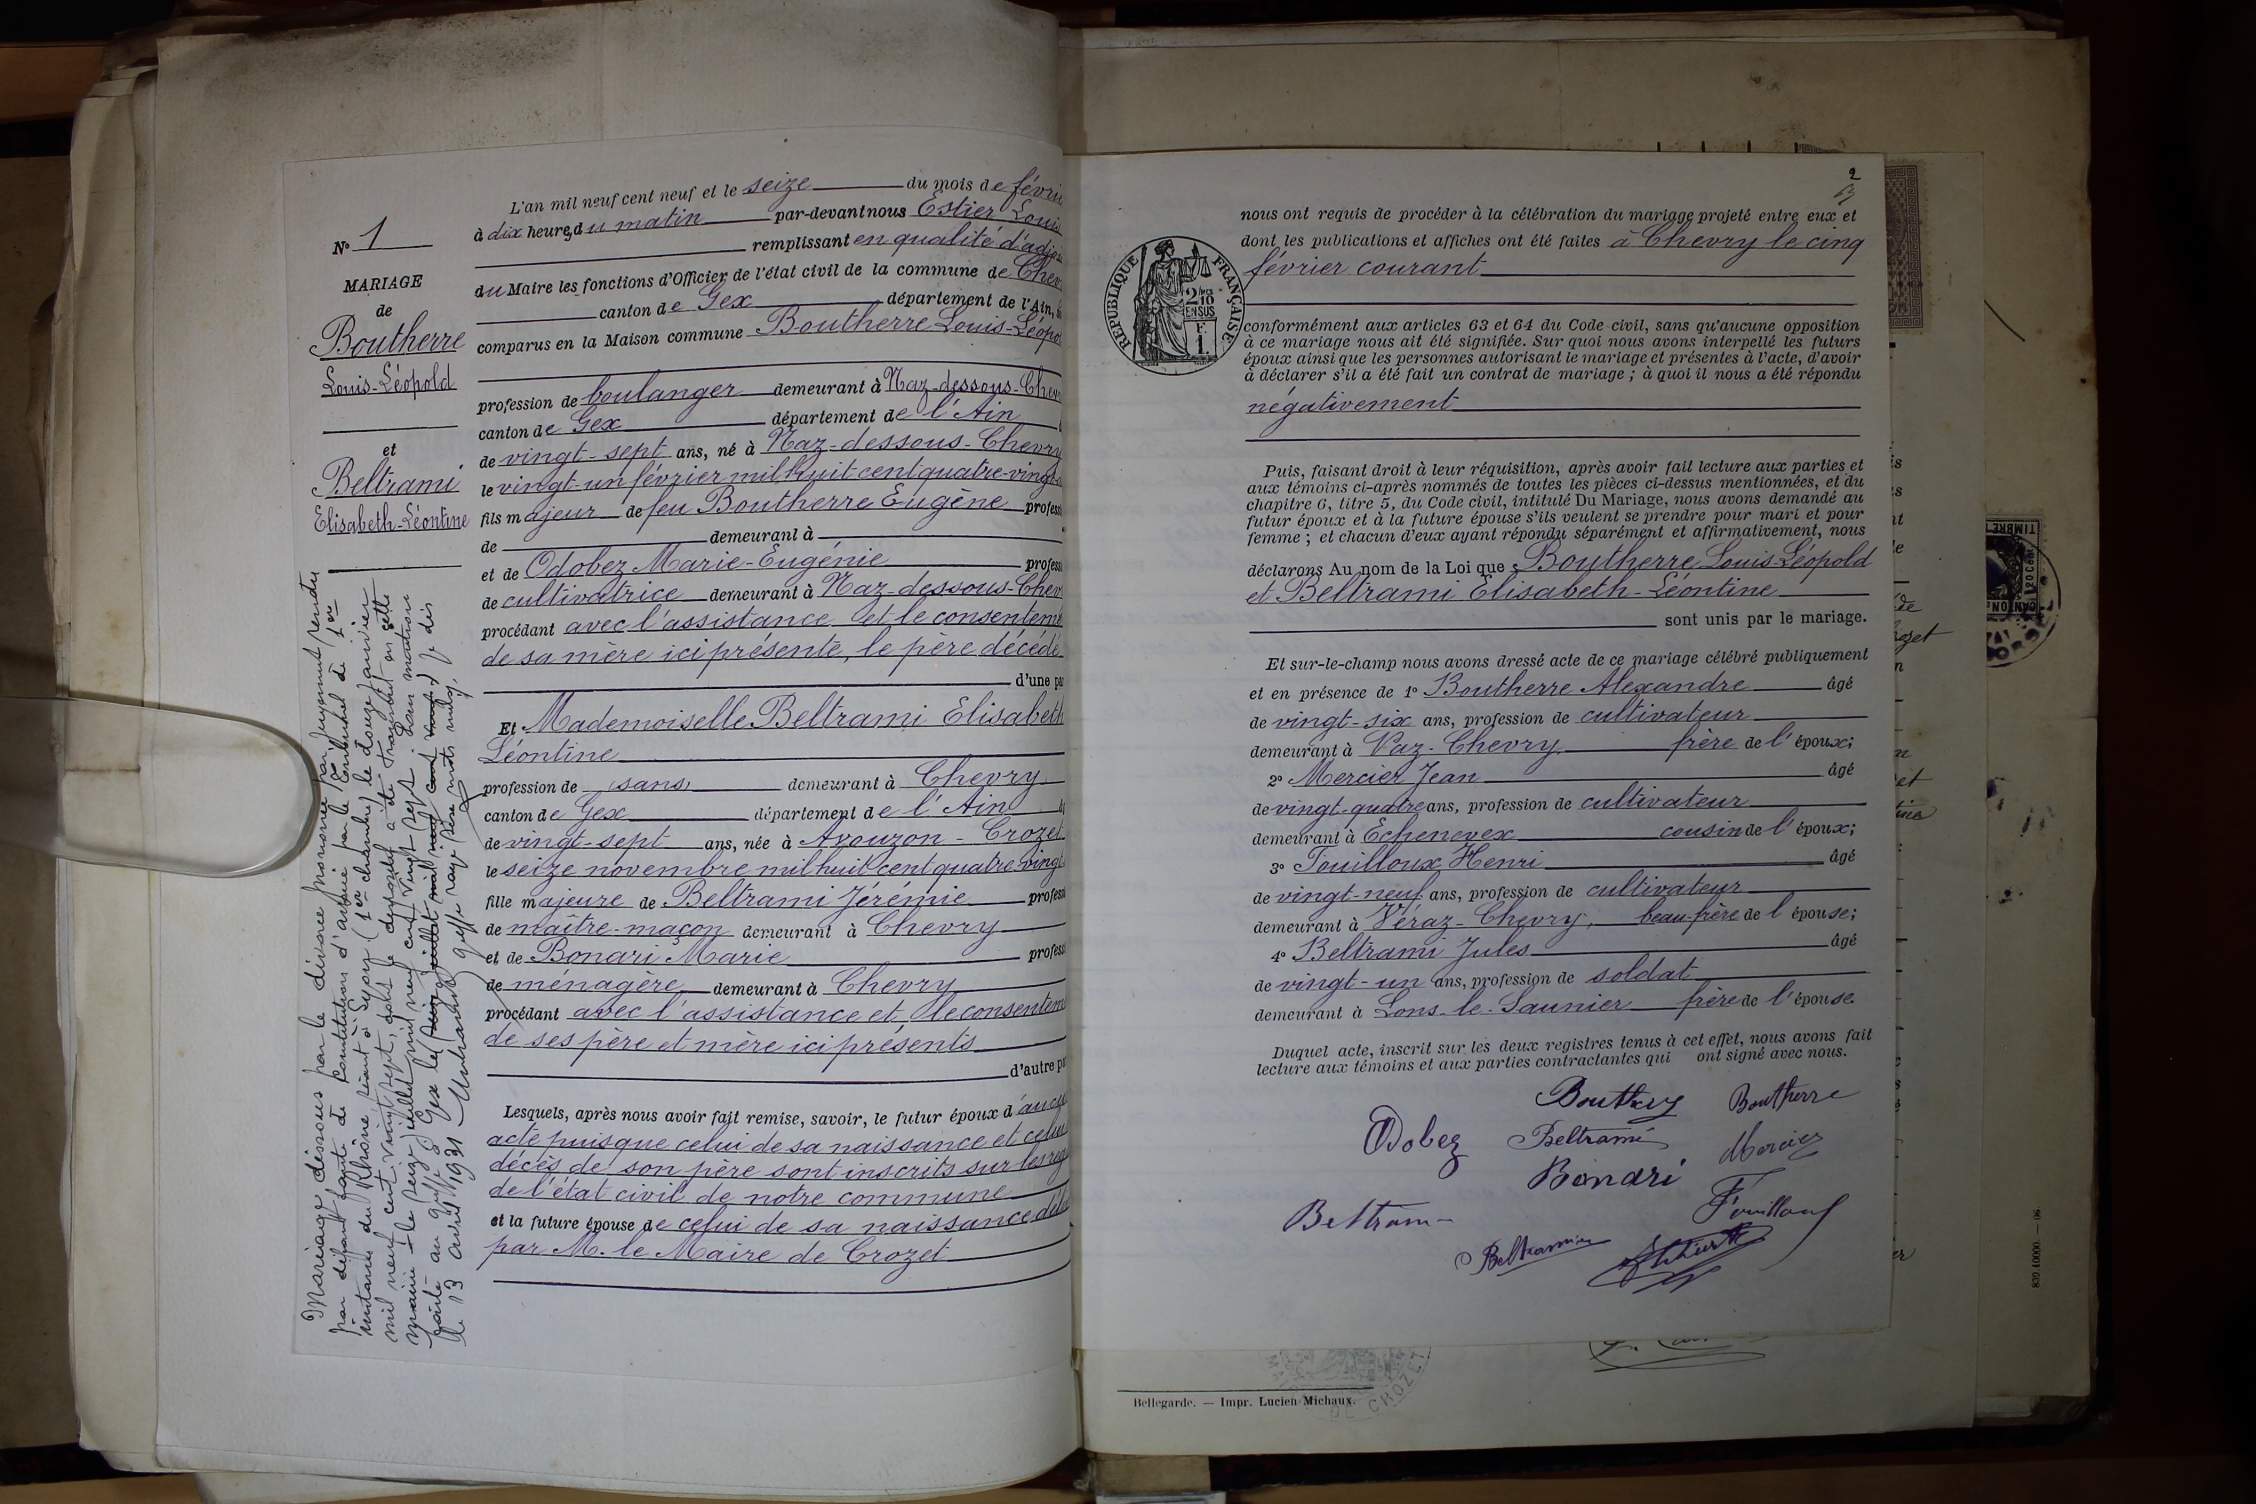 N° 1
MARIAGE
de
Boutherre
Louis-Léopold
et
Beltrami
Elisabeth-Léontine
L'an mil neuf cent neuf et le seize du mois de
à dix heures du matin par-devant nous Estier Louis
remplissant en qualité
du Maire les fonctions d'Officier de l'état civil de la commune de
canton de Gex département de l'Ain,
comparus en la Maison commune Boutherre Louis-
profession de boulanger demeurant à Naz-dessous-
canton de Gex département de l'Ain
de vingt-sept ans, né à Naz-dessous-Chevry
le vingt-un février mil huit cent quatre-vingt-
fils majeur de feu Boutherre Eugène
de demeurant à
et de Odobez Marie-Eugénie
de cultivatrice demeurant à Naz-dessous-
procédant avec l'assistance et le
de sa mère ici présente, le père décédé
d'une
Et Mademoiselle Beltrami Elisabeth
Léontine
profession de sans demeurant à Chevry
canton de Gex département de l'Ain
de vingt-sept ans, née à Avouzon - Crozet
le seize novembre mil huit cent quatre-vingt
fille majeure de Beltrami Jérémie
de maître-maçon demeurant à Chevry
et de Bonari Marie
de ménagère demeurant à Chevry
procédant avec l'assistance et le
de ses père et mère ici présents
d'autre
Lesquels, après nous avoir fait remise, savoir, le futur époux
acte puisque celui de sa naissance et
décès de son père sont inscrits sur les
de l'état civil de notre commune
et la future épouse de celui de sa naissance
par M. le Maire de Crozet
Mariage dissous par le divorce prononcé par jugement rendu
par défaut faute de constitution d'avoué par le tribunal de 1ère
instance du Rhône séant à Lyon (1ère chambre) le douze janvier
mil neuf cent vingt sept, dont le dispositif a été transcrit en cette
mairie le seize juillet mil neuf cent vingt sept. Sans mention
faite au greffe de Gex le
le 13 avril 1931
2
nous ont requis de procéder à la célébration du mariage projeté entre eux et
dont les publications et affiches ont été faites à Chevry le cinq
février courant
RÉPUBLIQUE FRANÇAISE
2/10 EN SUS
conformément aux articles 63 et 64 du Code civil, sans qu'aucune opposition
à ce mariage nous ait été signifiée. Sur quoi nous avons interpellé les futurs
époux ainsi que les personnes autorisant le mariage et présentes à l'acte, d'avoir
à déclarer s'il a été fait un contrat de mariage ; à quoi il nous a été répondu
négativement
Puis, faisant droit à leur réquisition, après avoir fait lecture aux parties et
aux témoins ci-après nommés de toutes les pièces ci-dessus mentionnées, et du
chapitre 6, titre 5, du Code civil, intitulé Du Mariage, nous avons demandé au
futur époux et à la future épouse s'ils veulent se prendre pour mari et pour
femme ; et chacun d'eux ayant répondu séparément et affirmativement, nous
déclarons Au nom de la Loi que : Boutherre Louis-Léopold
et Beltrami Elisabeth-Léontine
sont unis par le mariage.
Et sur-le-champ nous avons dressé acte de ce mariage célébré publiquement
et en présence de 1° Boutherre Alexandre âgé
de vingt-six ans, profession de cultivateur
demeurant à Naz-Chevry frère de l'époux;
2° Mercier Jean âgé
de vingt-quatre ans, profession de cultivateur
demeurant à Echenevex cousin de l'époux;
3° Fouilloux Henri âgé
de vingt-neuf ans, profession de cultivateur
demeurant à Véraz-Chevry, beau-frère de l'épouse;
4° Beltrami Jules âgé
de vingt-un ans, profession de soldat
demeurant à Lons-le-Saunier frère de l'épouse.
Duquel acte, inscrit sur les deux registres tenus à cet effet, nous avons fait
lecture aux témoins et aux parties contractantes qui ont signé avec nous.
Boutherre
Odobez Beltrami Mercier
Bonari
Bellegarde. — Impr. Lucien Michaux.